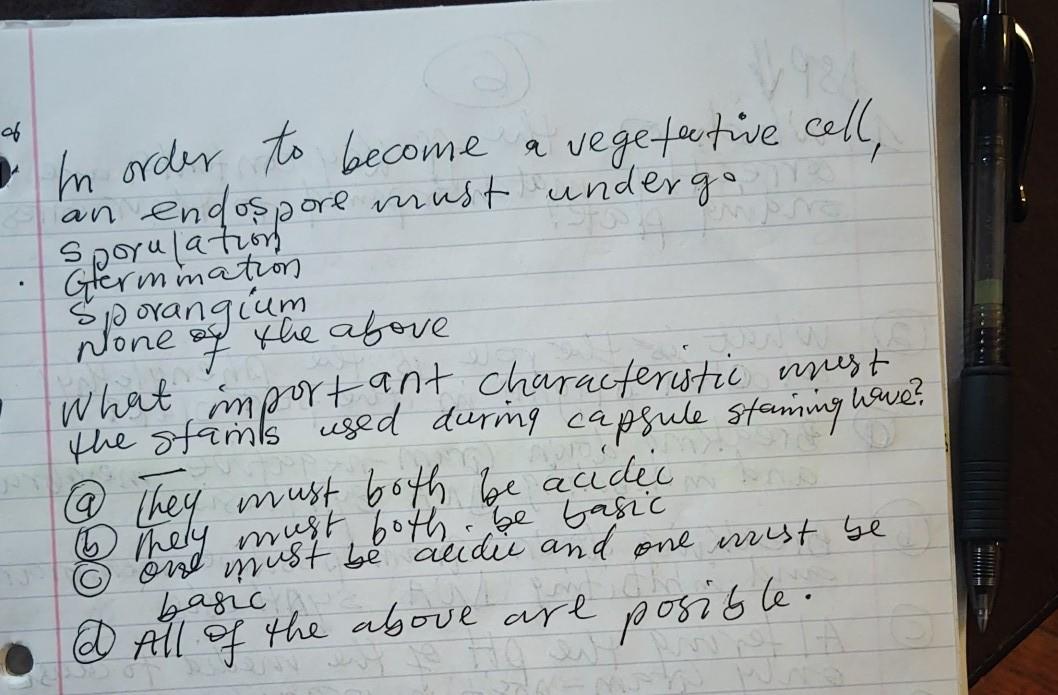 In order to become a vegetative cell,
an endospore must undergo
Sporulation
Germination
Sporangium
None of the above
What important characteristic must
the stains used during capsule staining have?
ⓐ They must both be acidic
ⓑ They must both be basic
ⓒ one must be acidic and one must be
basic
ⓓ All of the above are posible.